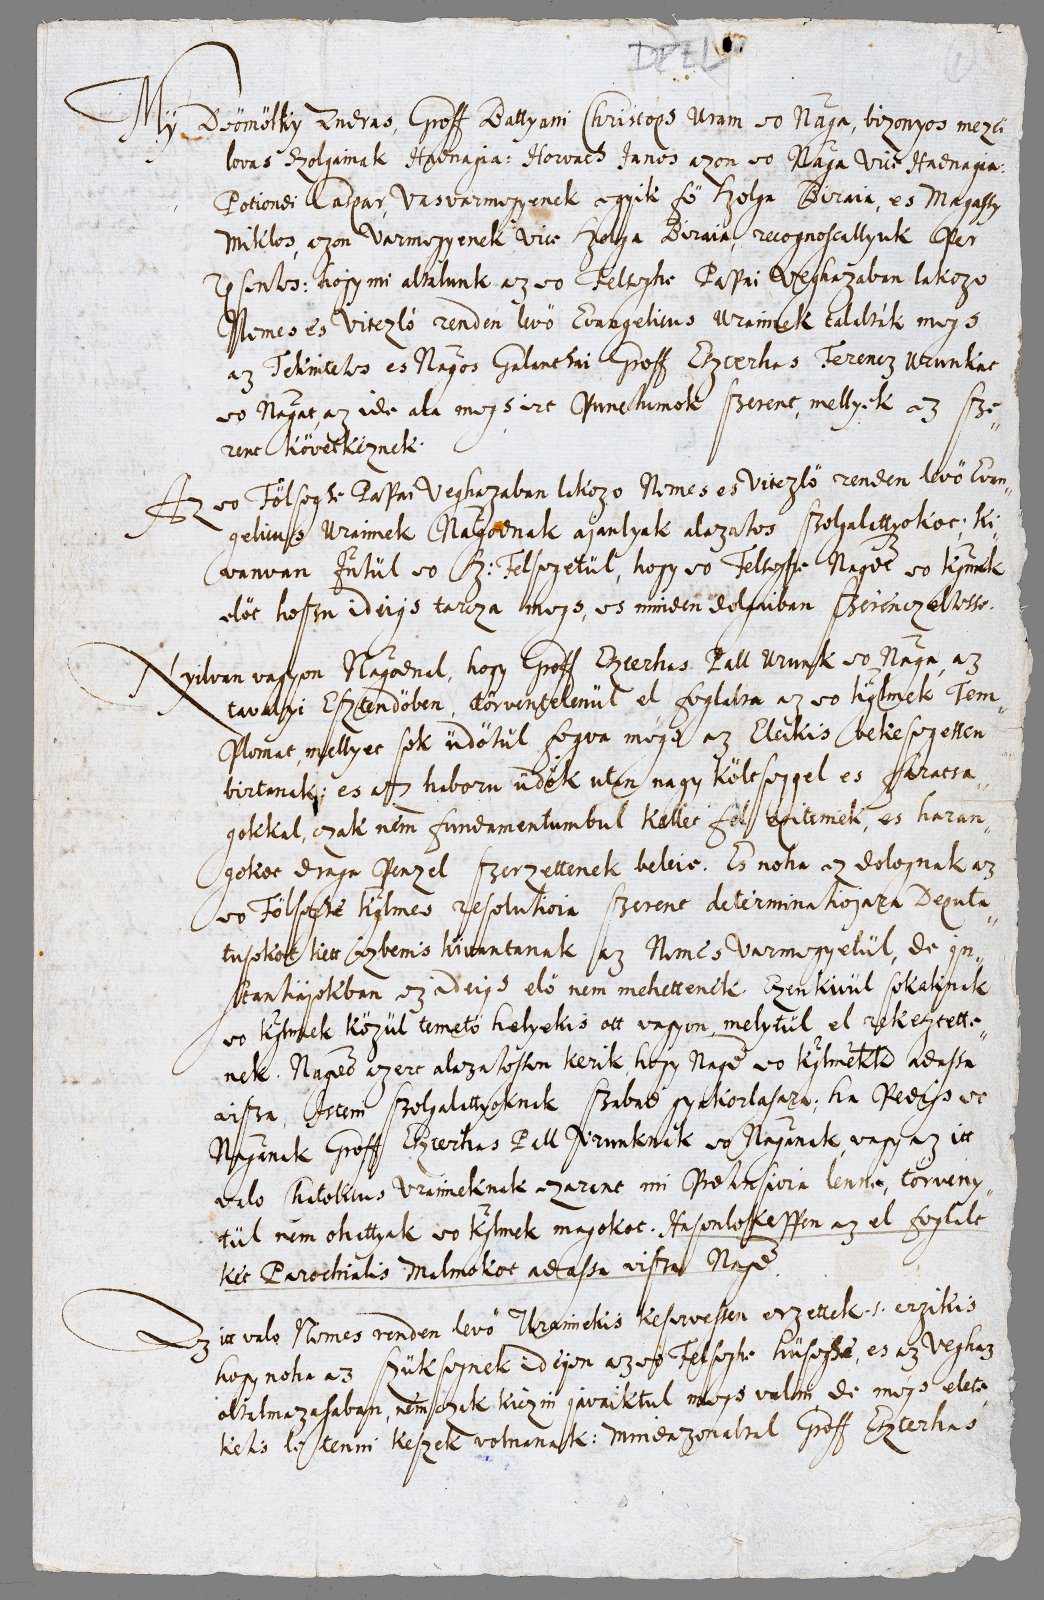 DEL
My Dömölkiy Andras, Groff Battyani Christoph Uram eo Naga, bizonyos mezei
lovas szolgainak Hadnagia: Horvath Janos azon eo Naga Vice Hadnagia:
Potiondi Caspar, Vasvarmegyenek egyik fö Szolga Biraia, es Magassy
Miklos, azon Varmegyenek Vice Szolga Biraia, recognoscallyuk Per
presentes: hogy mi altalunk az eo Felseghe Papai Veghazaban lakozo
Nemes es Vitezlö renden levö Evangelicus Uraimek talaltak megh
az Tekintetes es Nagos Galanthai Groff Ezterhas Ferencz Urunkat
eo Nagat, az ide ala megh irt Punctumok szerent, mellyek ez sze„
rent következnek.
Az eo Fölseghe Papai Veghazaban lakozo Nemes es Vitezlö renden levö Evan„
gelicus Uraimek Nagodnak ajanlyak alazatos szolgalattyokot; Ki„
vanvan Istül eo Sz: Felsegetül, hogy eo Felseghe Nagdt eo kglmek
elöt hoszu ideigh tarcza megh, es minden dolgaiban szerenczeltesse.
Nyilvan vagyon Nagodnal, hogy Groff Ezterhas Pall Urunk eo Naga, az
tavalyi Esztendöben, törventelenül el foglalta az eo kglmek Tem„
plomat, mellyet sok üdötül fogva megh az Eleikis bekesegessen
birtanak; es az haboru üdök utan nagy költseggel es faratsa„
gokkal, czak nem fundamentumbul kellet fel epitenek, es haran„
gokot draga Penzel szerzettenek beleie. Es noha ez dolognak az
eo Fölseghe kglmes resolutioia szerent determinatiojara Deputa„
tusokot kett izbenis kivantanak az Nemes Varmegyetül, de in„
stantiajokban ez ideigh elö nem mehettenek. Ezenkivül sokaknak
eo kglmek közül temetö helyekis ott vagyon, melytül el rekeztette„
nek. Nagdd azert alazatosson kerik, hogy Nagd eo kglmeknek adassa
visza, Isteni szolgalattyoknak szabad gyakorlasara; ha Pedigh eo
Naganak Groff Ezterhas Pall Urunknak eo Naganak, vagy az itt
valo Catolicus Uraimeknak ezarant mi Praetensioia lenne, törveny„
tül nem ohattyak eo kglmek magokot. Hasonlokeppen az el foglalt
ket Parochialis Malmokot adassa visza Nagd.
Ez itt valo Nemes renden levö Uraimekis keservessen erzettek s erzikis
hogy noha az szüksegnek idejen az eo Felseghe hüseghe, es az Veghaz
oltalmazasaban, nemczak kiczin javaiktul megh valni de megh elete„
ketis le tenni keszek volnanak: Mindazonaltal Groff Ezterhas